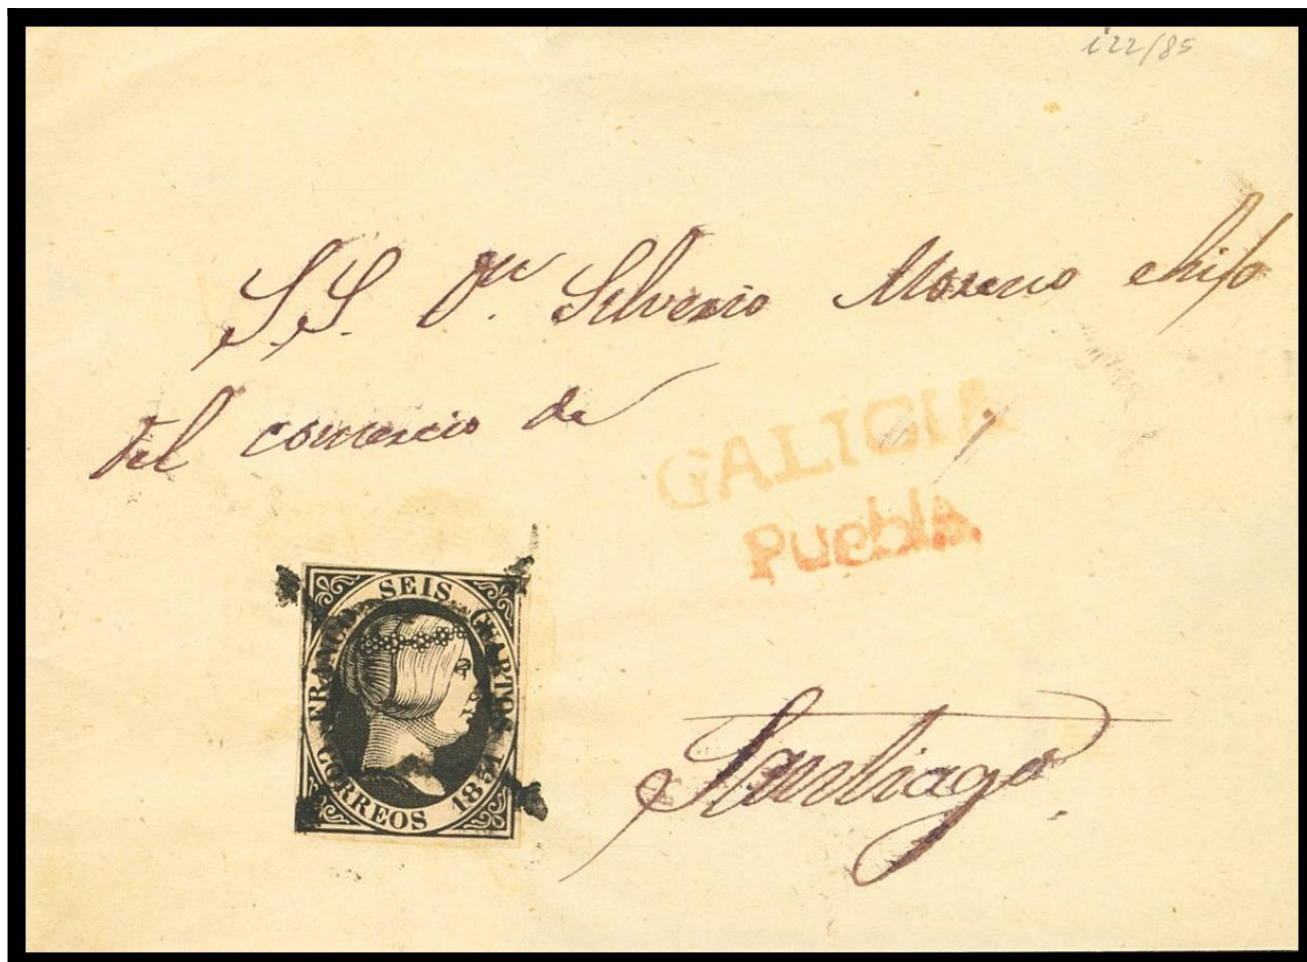 i22/85
S.S. Dn. Silverio Moreno é hijo
del comercio de
GALICIA
Puebla.
FRANCO SEIS CUARTOS
CORREOS 1851
Santiago.